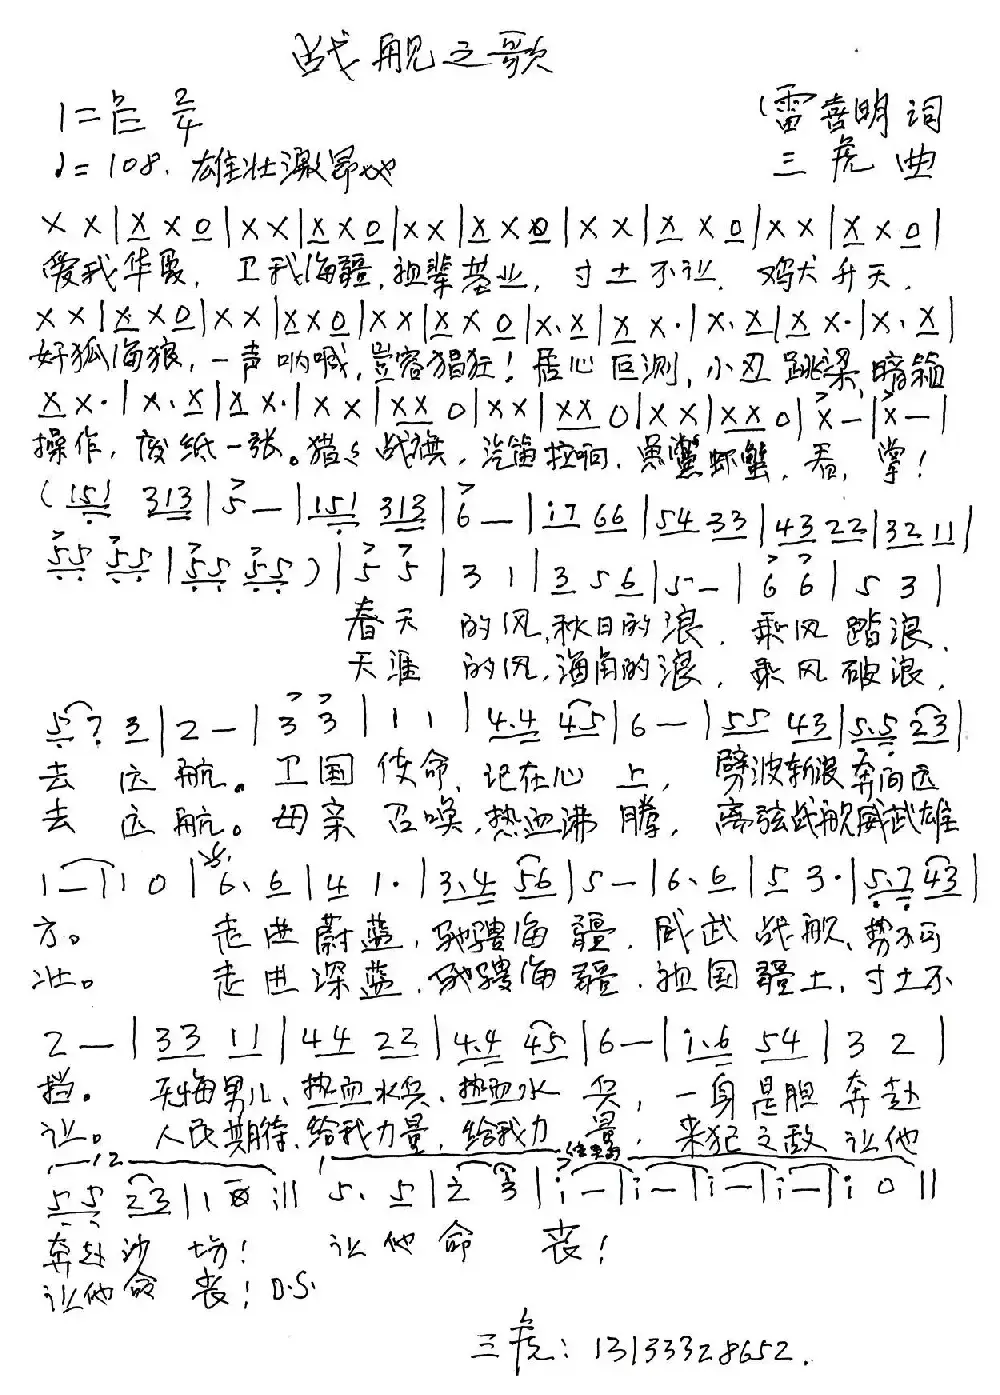 战舰之歌
1=ᵇE 2/4
♩=108. 雄壮激昂地
(雷喜明 词
三虎 曲
X X | X X 0 | X X | X X 0 | X X | X X 0 | X X | X X 0 | X X | X X 0 |
爱我华夏, 卫我海疆, 祖辈基业, 寸土不让, 鸡犬升天,
X X | X X 0 | X X | X X 0 | X X | X X 0 | X. X | X X. | X. X | X X. | X. X |
奸狐海狼, 一声呐喊, 岂容猖狂! 居心叵测, 小丑跳梁, 暗箱
X X. | X. X | X X. | X X | X X 0 | X X | X X 0 | X X | X X 0 | X — | X — |
操作, 废纸一张。猎猎战旗, 汽笛拉响, 鱼鳖虾蟹, 看, 掌!
(151 313 | 5 — | 151 313 | 6 — | i7 66 | 54 33 | 43 22 | 32 11 |
55 55 | 55 55 ) | 5 5 | 3 1 | 3 5 6 | 5 — | 6 6 | 5 3 |
春天 的风, 秋日的浪, 乘风踏浪,
天涯 的风, 海角的浪, 乘风破浪,
5 7 3 | 2 — | 3 3 | 1 1 | 4.4 45 | 6 — | 55 43 | 5.5 23 |
去 远航。卫国使命, 记在心上, 劈波斩浪奔向远
去 远航。母亲召唤, 热血沸腾, 离弦战舰威武雄
1 — | 1 0 | 6. 6 | 4 1. | 3.4 56 | 5 — | 6. 6 | 5 3. | 5.7 43 |
方。 走进蔚蓝, 驰骋海疆, 威武战舰, 势不可
壮。 走进深蓝, 驰骋海疆, 祖国疆土, 寸土不
2 — | 33 11 | 44 22 | 4.4 45 | 6 — | i.6 54 | 3 2 |
挡。 无悔男儿, 热血水兵, 热血水兵, 一身是胆奔赴
让。 人民期待, 给我力量, 给我力量, 来犯之敌让他
55 23 | 1 0 :|| 5. 5 | 2 3 | i — | i — | i — | i — | i 0 ||
奔赴沙场! 让他命丧!
让他命丧! D.S.
三虎: 13133328652.